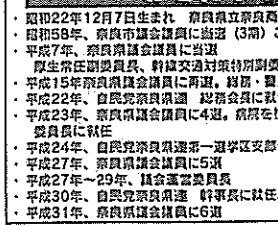 ・昭和22年12月7日生まれ 奈良県立奈良商
・昭和58年、奈良市議会議員に当選(3期)
・平成7年、奈良県議会議員に当選
厚生常任副委員長、幹線交通対策特別副委
・平成15年奈良県議会議員に再選。総務・
・平成22年、自民党奈良県連 総務会長に就
・平成23年、奈良県議会議員に4選。
委員長に就任
・平成24年、自民党奈良県連第一選挙区支部
・平成27年、奈良県議会議員に5選
・平成27年～29年、議会運営委員長
・平成30年、自民党奈良県連 幹事長に就任
・平成31年、奈良県議会議員に6選